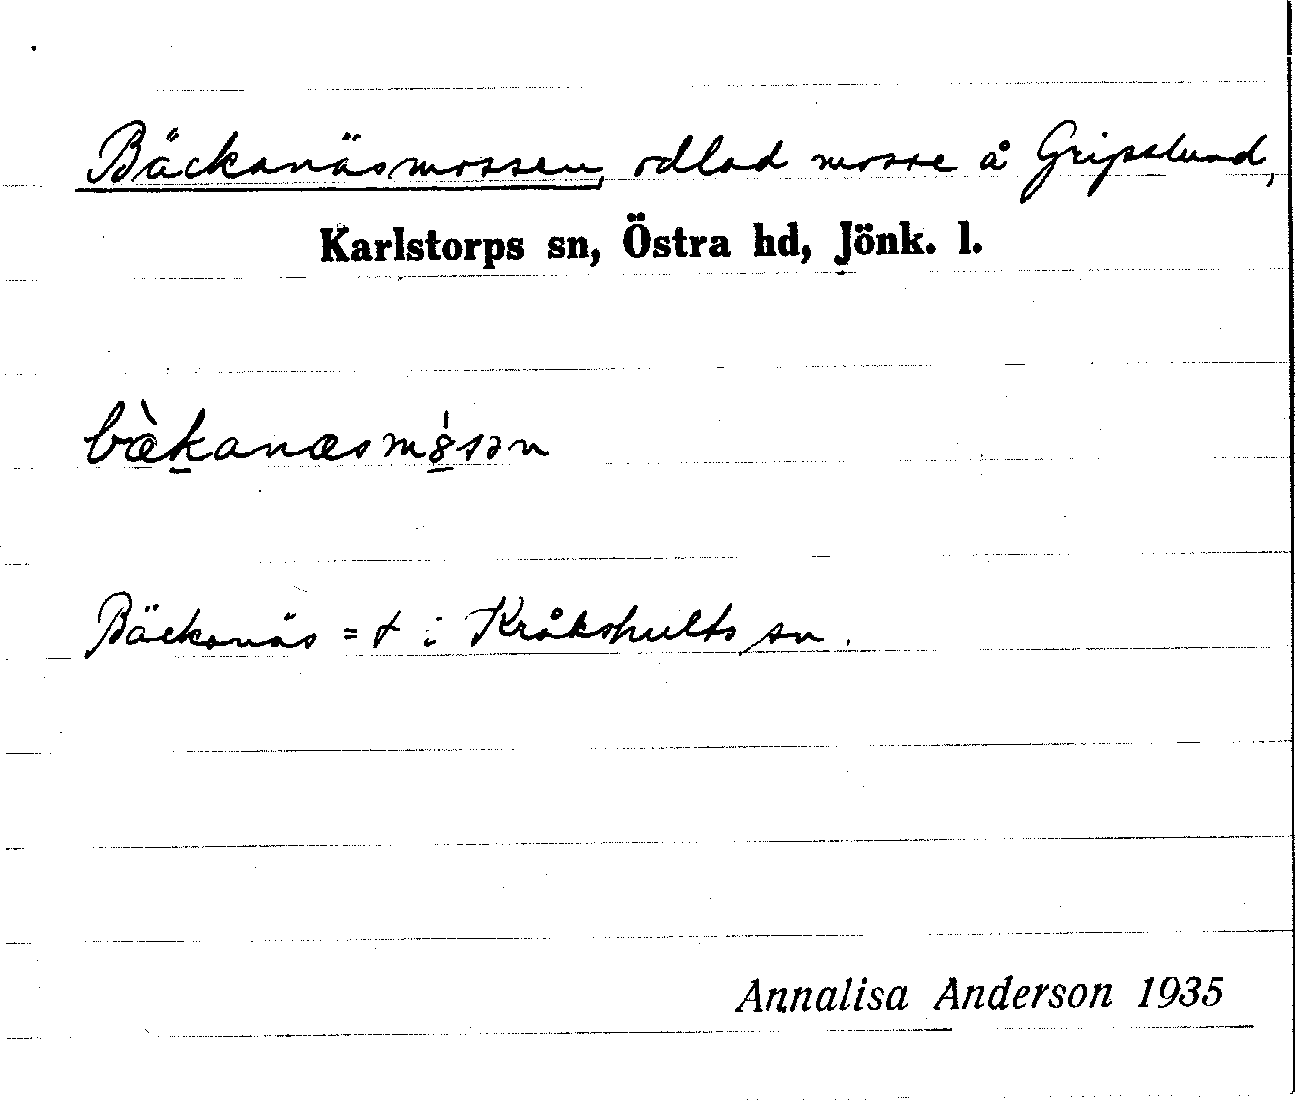 Bäckanäsmossen, odlad mosse å Gripslund,
Karlstorps sn, Östra hd, Jönk. l.
bæ̀k̠anæsmꞷ̠́sən
Bäckanäs = t i Kråkshults sn.
Annalisa Anderson 1935